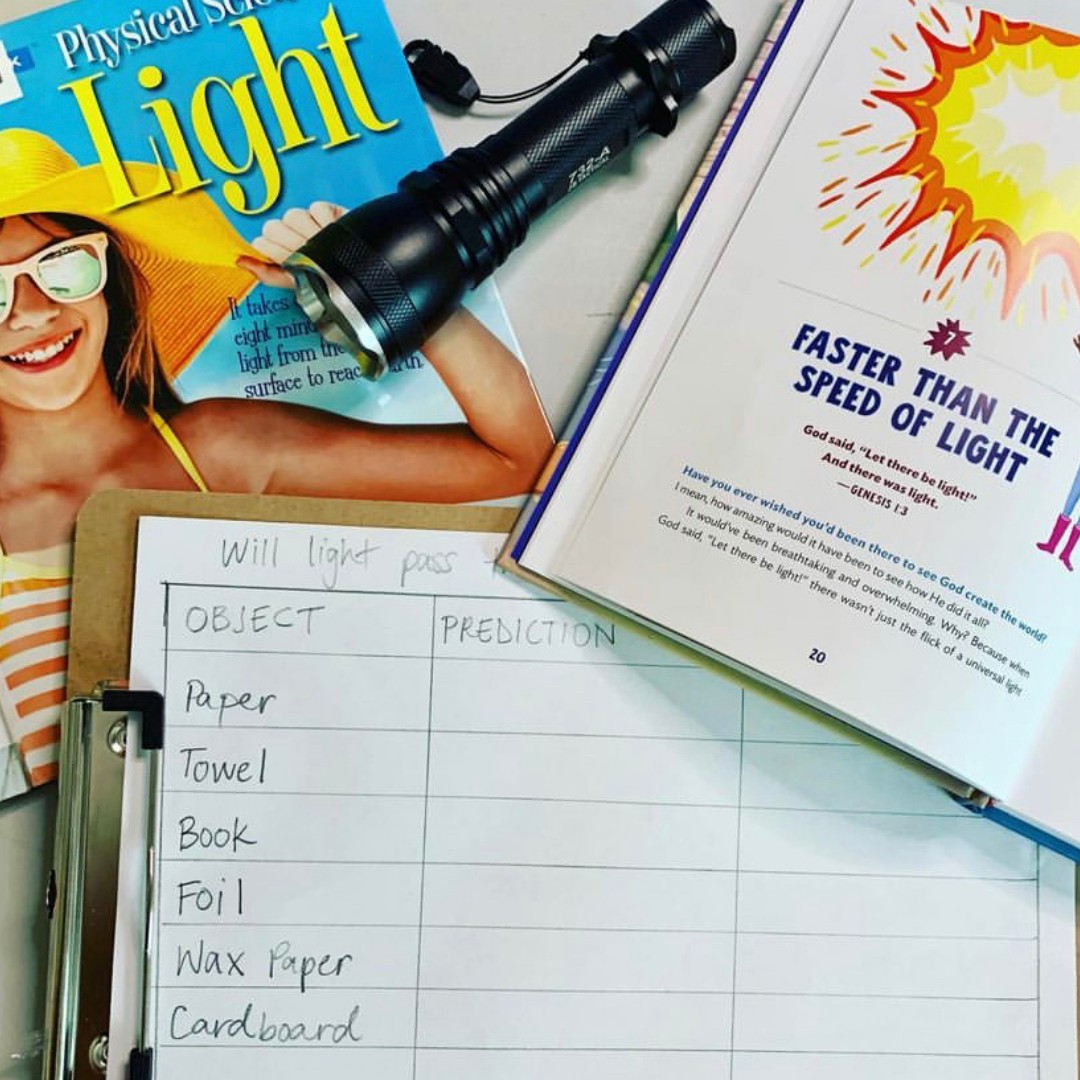 Physical
Light
It takes
eight
light from the
surface to
God said, "Let there be light!"
7
FASTER THAN THE
SPEED OF LIGHT
God said, "Let there be light!"
And there was light.
—GENESIS 1:3
Have you ever wished you'd been there to see God create the world?
I mean, how amazing would it have been to see how He did it all?
It would've been breathtaking and overwhelming. Why? Because when
God said, "Let there be light!" there wasn't just the flick of a universal light
20
Will light pass
OBJECT
PREDICTION
Paper
Towel
Book
Foil
Wax Paper
Cardboard